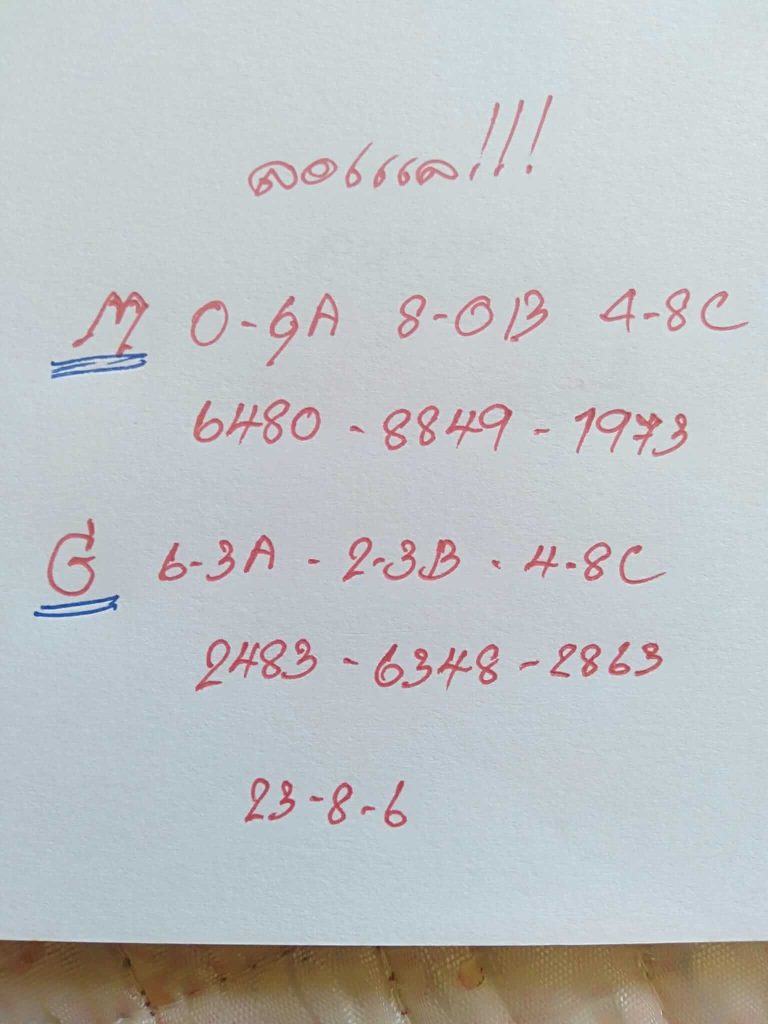 ลองแล!!!
M 0-9A 8-0B 4-8C
6480 - 8849 - 1973
G 6-3A - 2-3B - 4-8C
2483 - 6348 - 2863
23-8-6